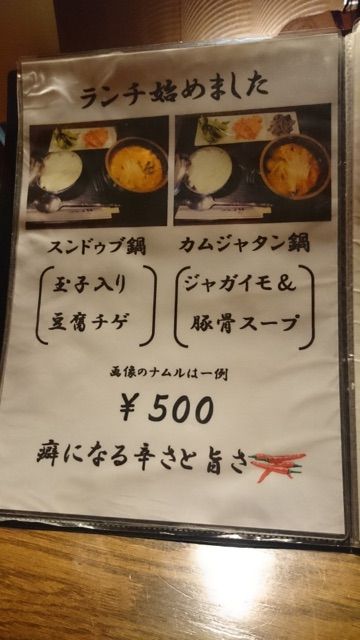 ランチ始めました
スンドゥブ鍋
玉子入り
豆腐チゲ
カムジャタン鍋
ジャガイモ&
豚骨スープ
画像のナムルは一例
¥500
癖になる辛さと旨さ